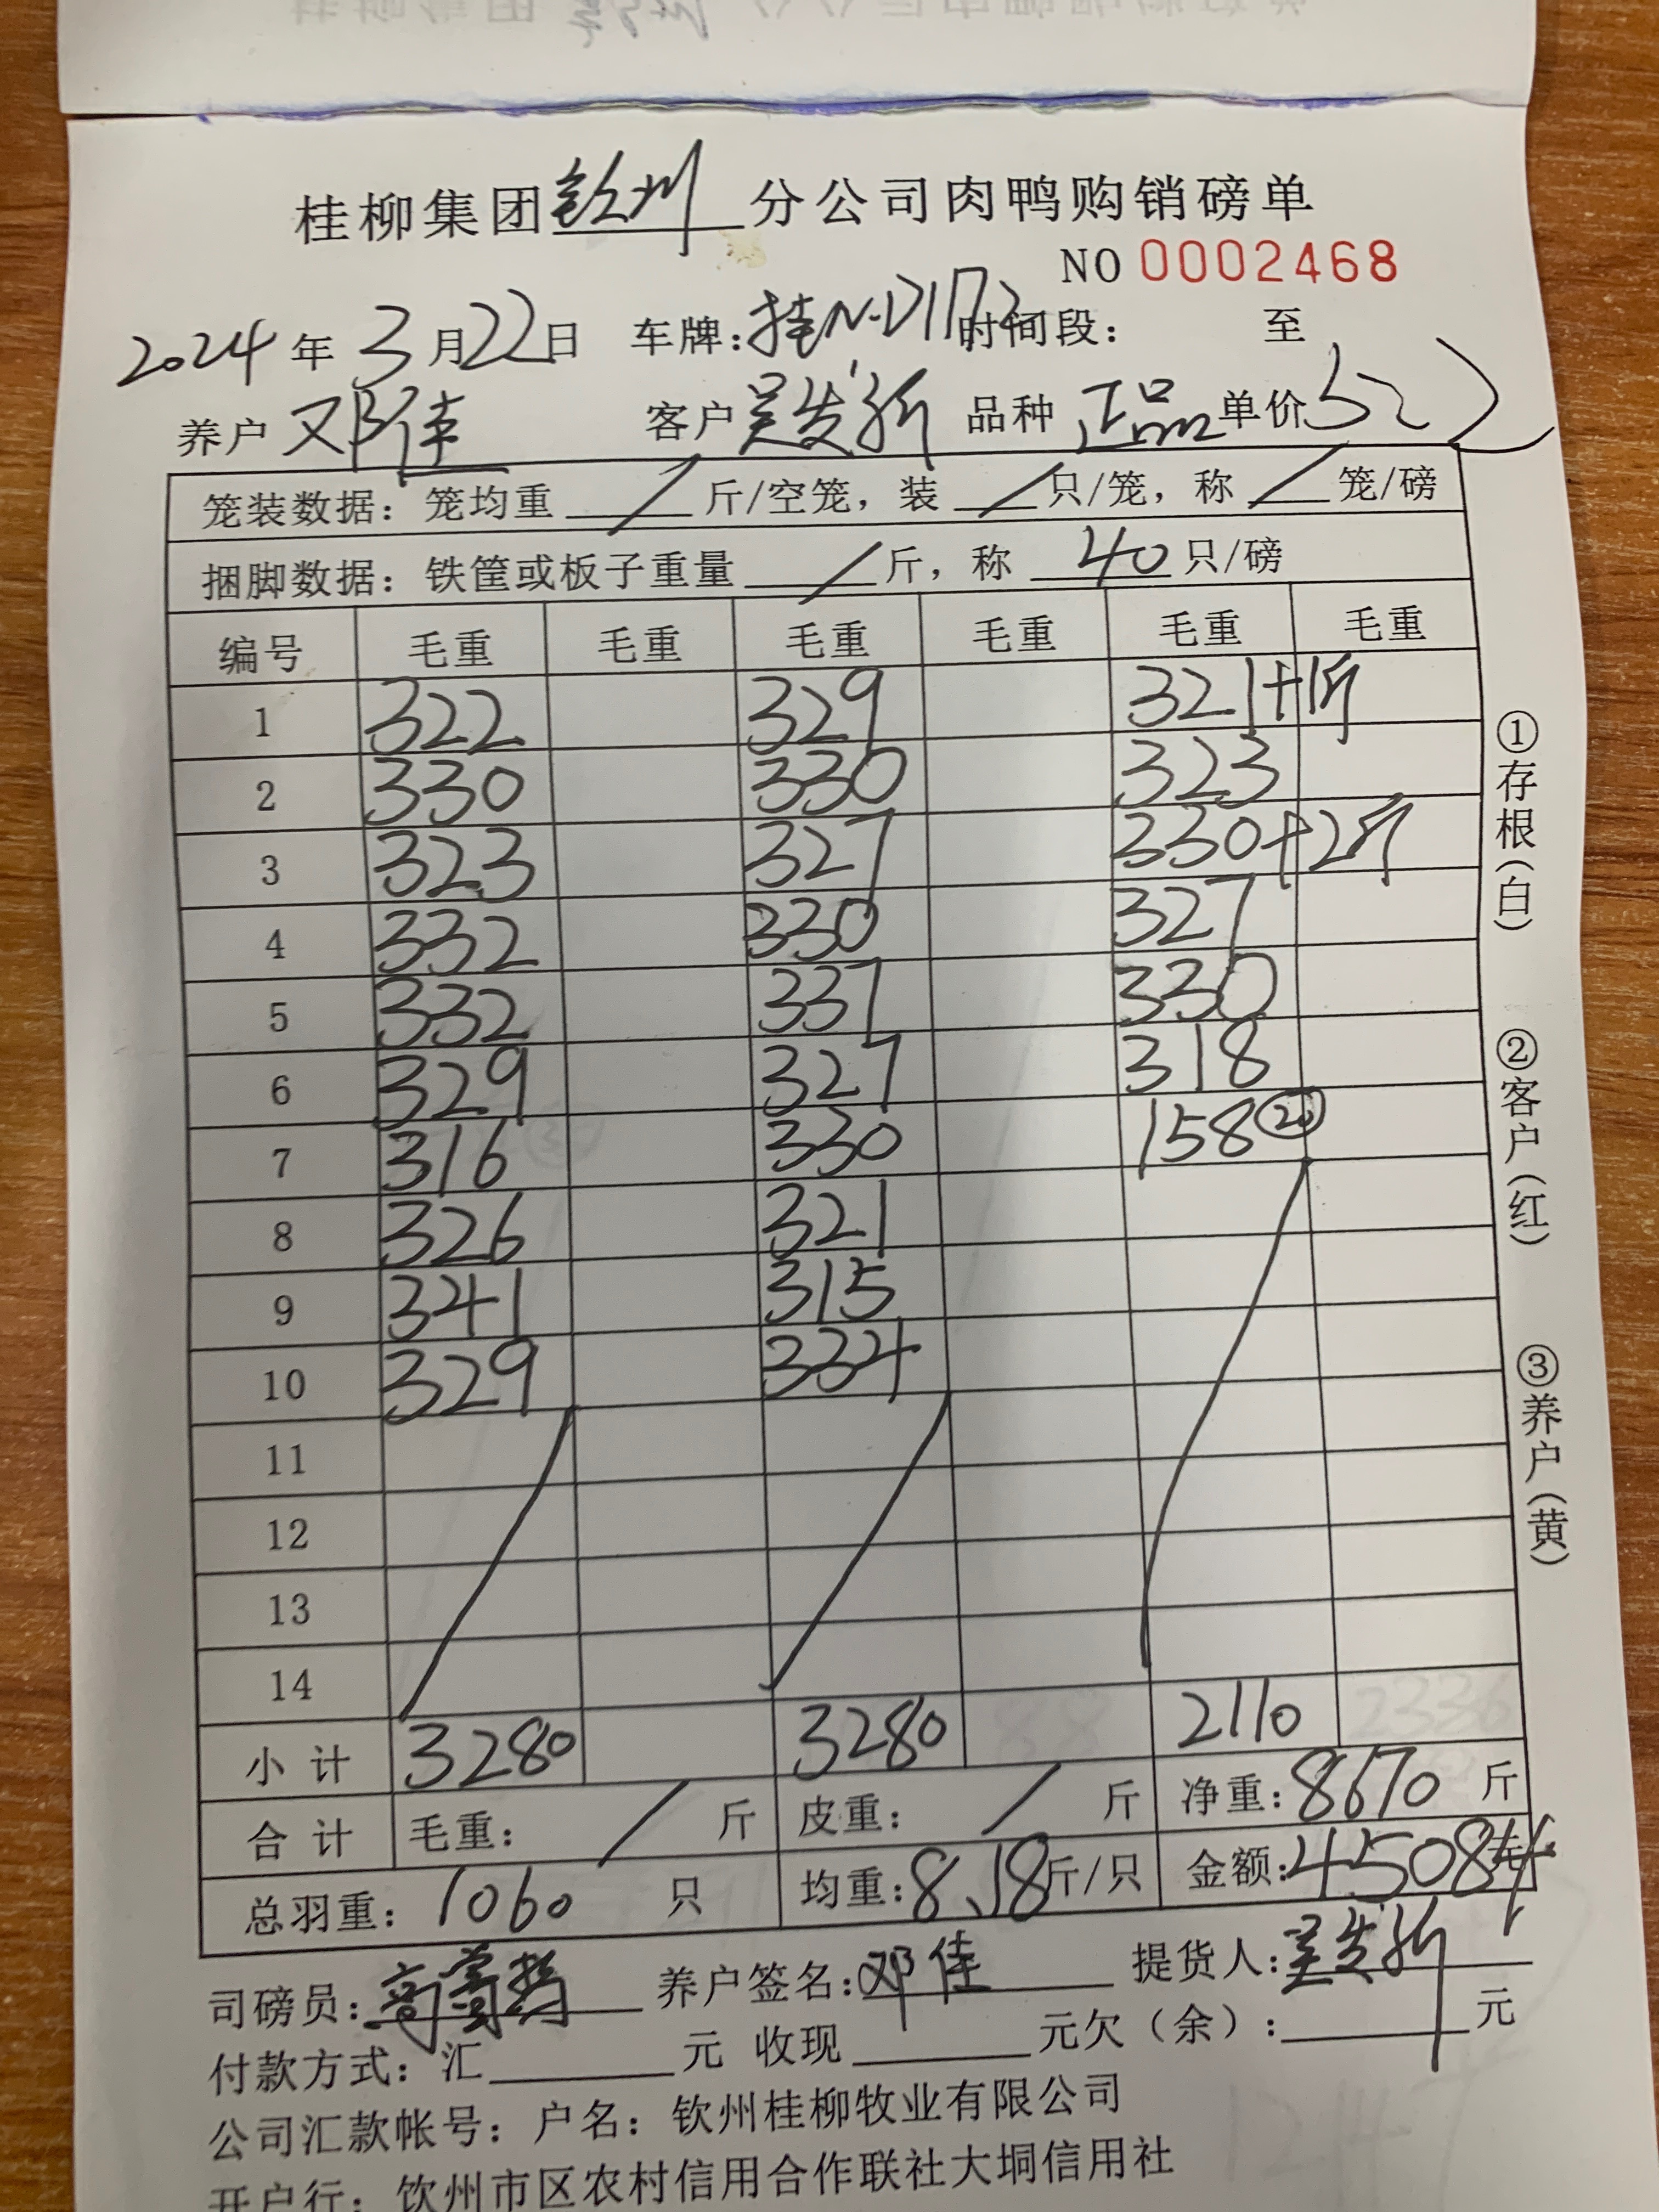 桂柳集团钦州分公司肉鸭购销磅单
NO 0002468
2024年3月22日 车牌:桂N·D1172 时间段: 至
养户 邓佳 客户 吴发新 品种 正品 单价 5.2
笼装数据:笼均重 / 斤/空笼,装 / 只/笼,称 / 笼/磅
捆脚数据:铁筐或板子重量 / 斤,称 40 只/磅
编号 毛重 毛重 毛重 毛重 毛重 毛重
1 322 329 321+1斤
2 330 330 323
3 323 327 330+2斤
4 332 330 327
5 332 337 330
6 329 327 318
7 316 330 158 ⑳
8 326 321
9 341 315
10 329 334
11
12
13
14
小计 3280 3280 2110
合计 毛重: / 斤 皮重: / 斤 净重:8670 斤
总羽重:1060 只 均重:8.18斤/只 金额:45084元
司磅员: 养户签名:邓佳 提货人:吴发新
付款方式:汇 元 收现 元欠(余): 元
公司汇款帐号:户名:钦州桂柳牧业有限公司
开户行:钦州市区农村信用合作联社大垌信用社
①存根(白)
②客户(红)
③养户(黄)